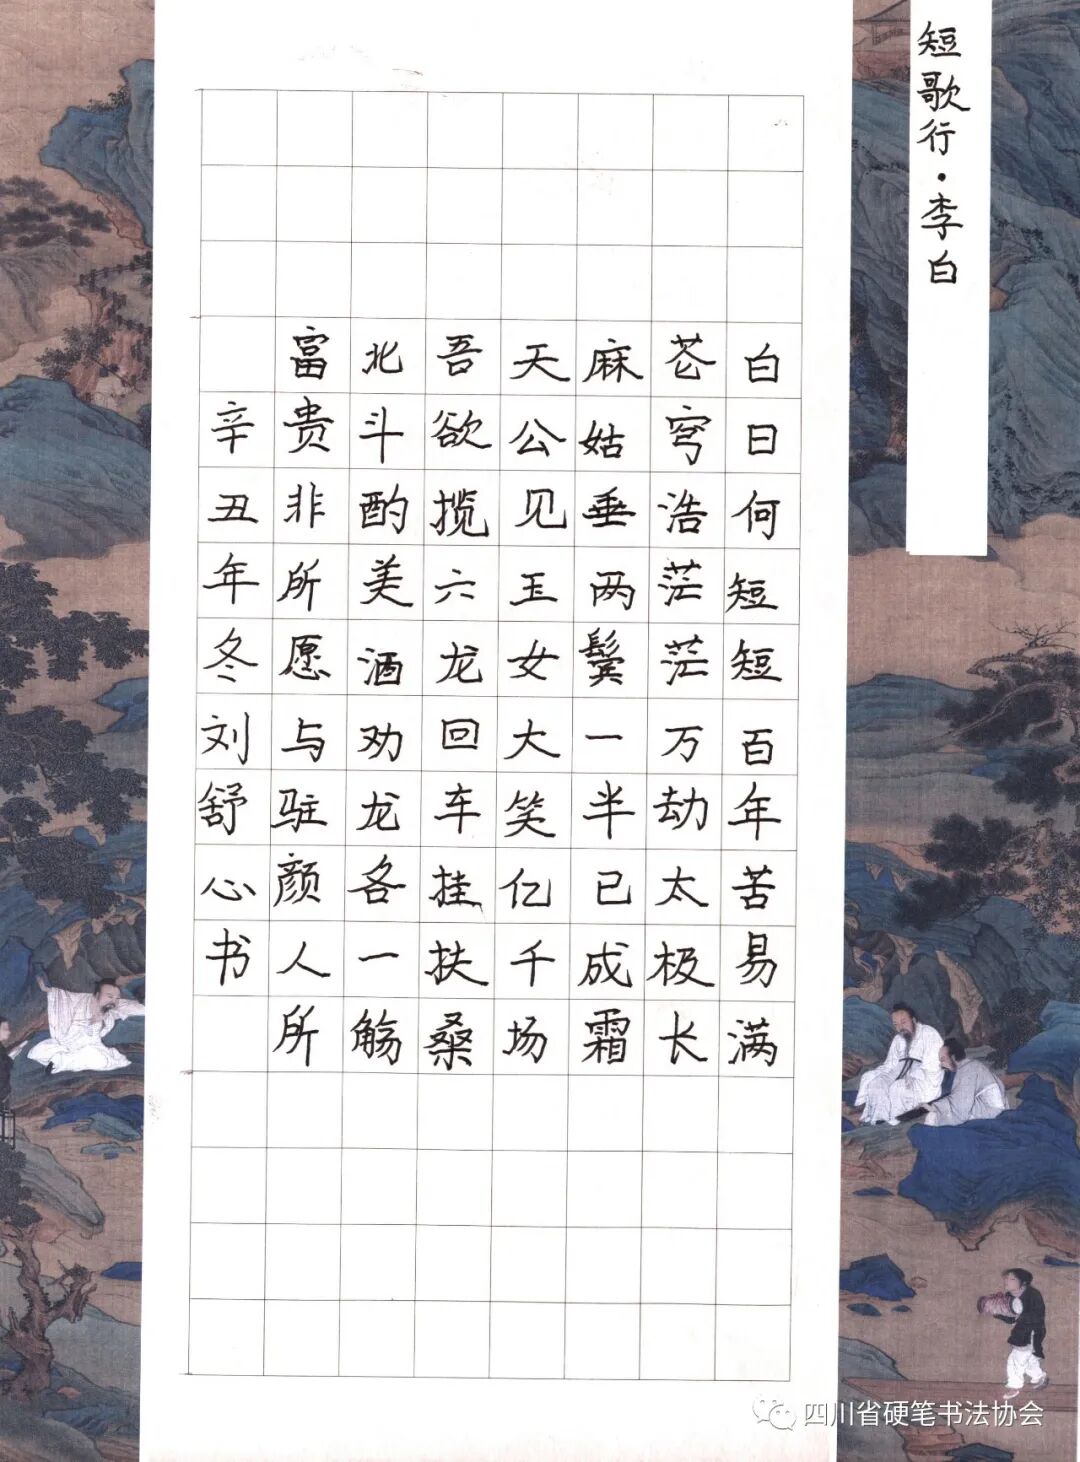 短歌行·李白
白日何短短百年苦易满
苍穹浩茫茫万劫太极长
麻姑垂两鬓一半已成霜
天公见玉女大笑亿千场
吾欲揽六龙回车挂扶桑
北斗酌美酒劝龙各一觞
富贵非所愿与驻颜人所
辛丑年冬刘舒心书
四川省硬笔书法协会